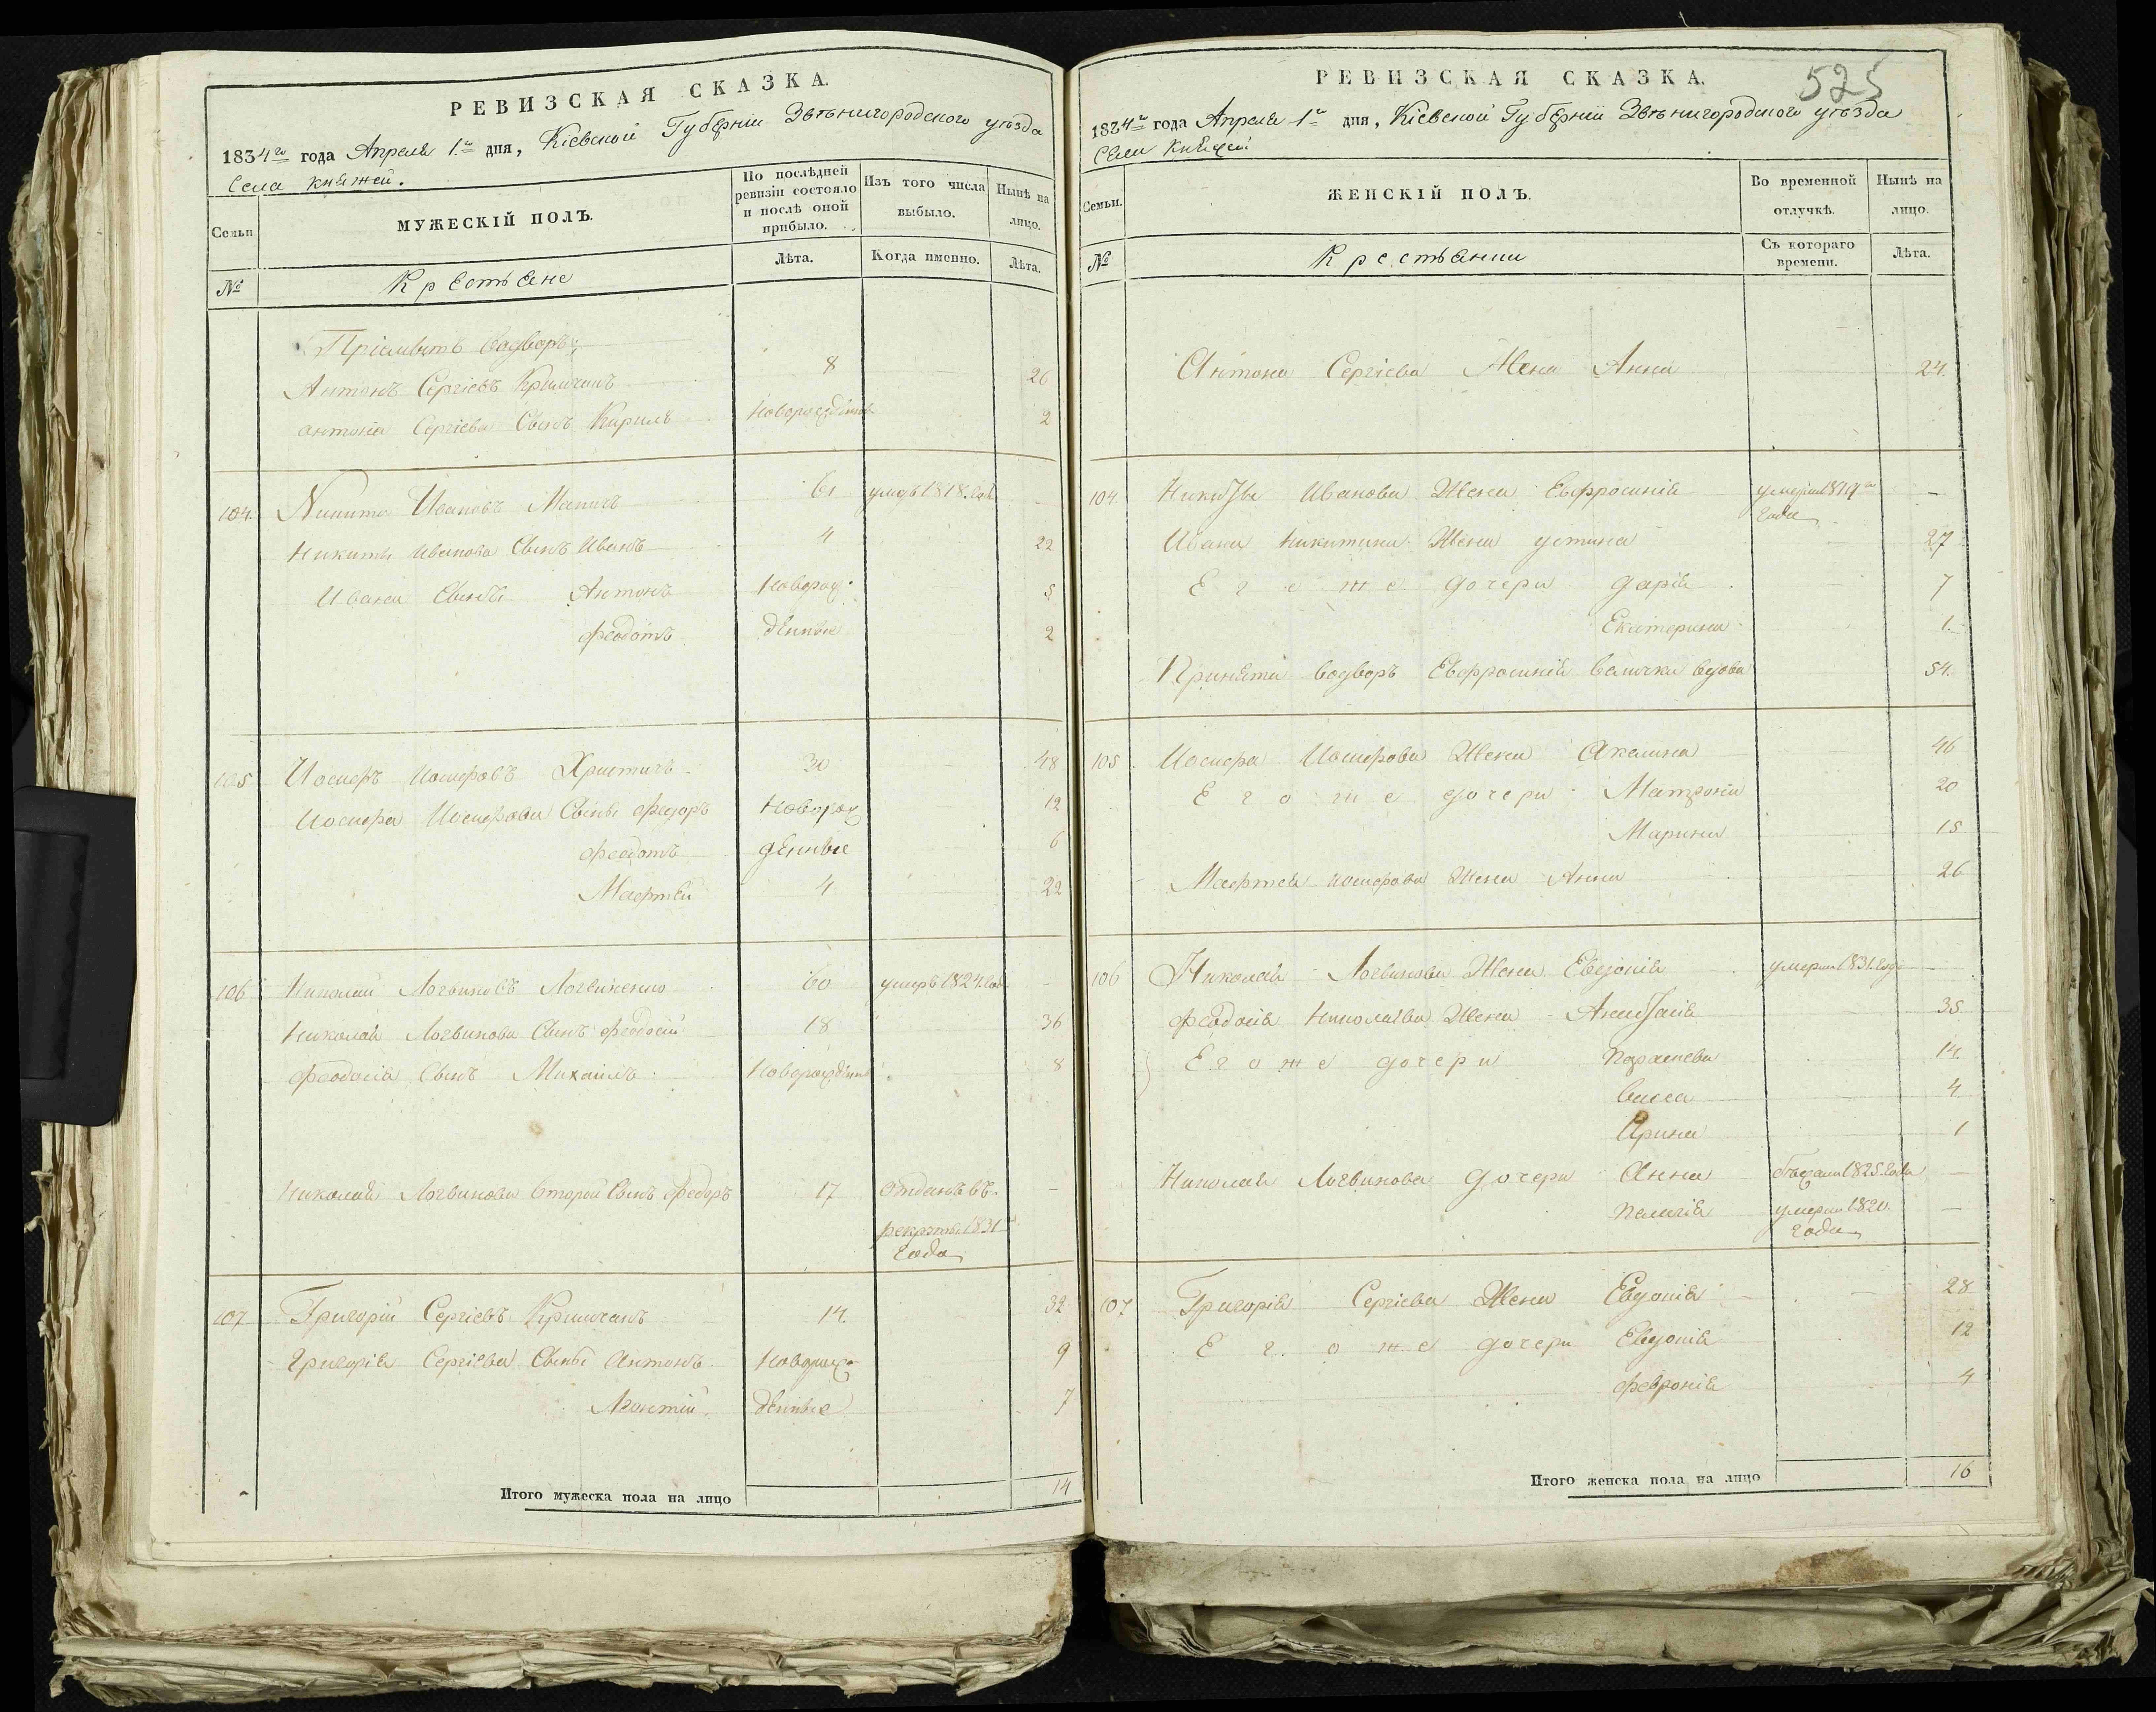 РЕВИЗСКАЯ СКАЗКА.
1834го года Апреля 1го дня, Кіевской Губерніи Звѣнигородского уѣзда
Села Княжей.
Семьи
МУЖЕСКІЙ ПОЛЪ.
По послѣдней ревизіи состояло и послѣ оной прибыло.
Изъ того числа выбыло.
Нынѣ на лицо.
№
Крестьяне
Лѣта.
Когда именно.
Лѣта.
водворъ
Антонъ Сергіевъ 8 26
антона Сергіева Сынъ Кирилъ 2
104. Никита Ивановъ 61 1818 —
Никиты Иванова Сынъ Иванъ 4 22
Ивана Сыны Антонъ Новорож 5
Феодотъ денные 2
105 Иосифъ Иосифовъ Христичъ 30 48
Иосифа Иосифова Сыны Федоръ Новорож 12
Феодотъ денные 6
Мафтей 4 22
106 Николай Логвиновъ Логвиненко 60 умеръ 1824. —
Николая Логвинова Сынъ Феодосій 18 36
Феодосія Сынъ Михаилъ 8
Николая Логвинова Второй Сынъ Федоръ 17 Отданъ въ —
рекруты 1831го
года
107 Григорій Сергіевъ 14. 32
Григорія Сергіева Сыны Антонъ Новорож 9
денные 7
Итого мужеска пола на лицо 14
РЕВИЗСКАЯ СКАЗКА.
525
1834го года Апреля 1го дня, Кіевской Губерніи Звѣнигородского уѣзда
Села Княжей
Семьи.
ЖЕНСКІЙ ПОЛЪ.
Во временной отлучкѣ.
Нынѣ на лицо.
№
Крестьянки
Съ котораго времени.
Лѣта.
Антона Сергіева Жена Анна 24.
104. Никиты Иванова Жена Евфросинія умерла 1819го —
года
Ивана Никитина Жена устина 27
Его же дочери дарія 7
Екатерина 1.
Принята водворъ Евфросинія вдова 54.
105 Иосифа Иосифова Жена Акилина 46
Его же дочери Матрона 20
Марина 15
Мафтея Иосифова Жена Анна 26
106 Николая Логвинова Жена Евдокія умерла 1831. —
Феодосія Николаева Жена Анастасія 35.
Его же дочери Параскева 14.
Васса 4
Ирина 1
Николая Логвинова дочери Анна 1825 года —
Пелагія умерла 1820. —
года
107 Григорія Сергіева Жена Евдокія 28
Его же дочери Евдокія 12
Февронія 4
Итого женска пола на лицо 16